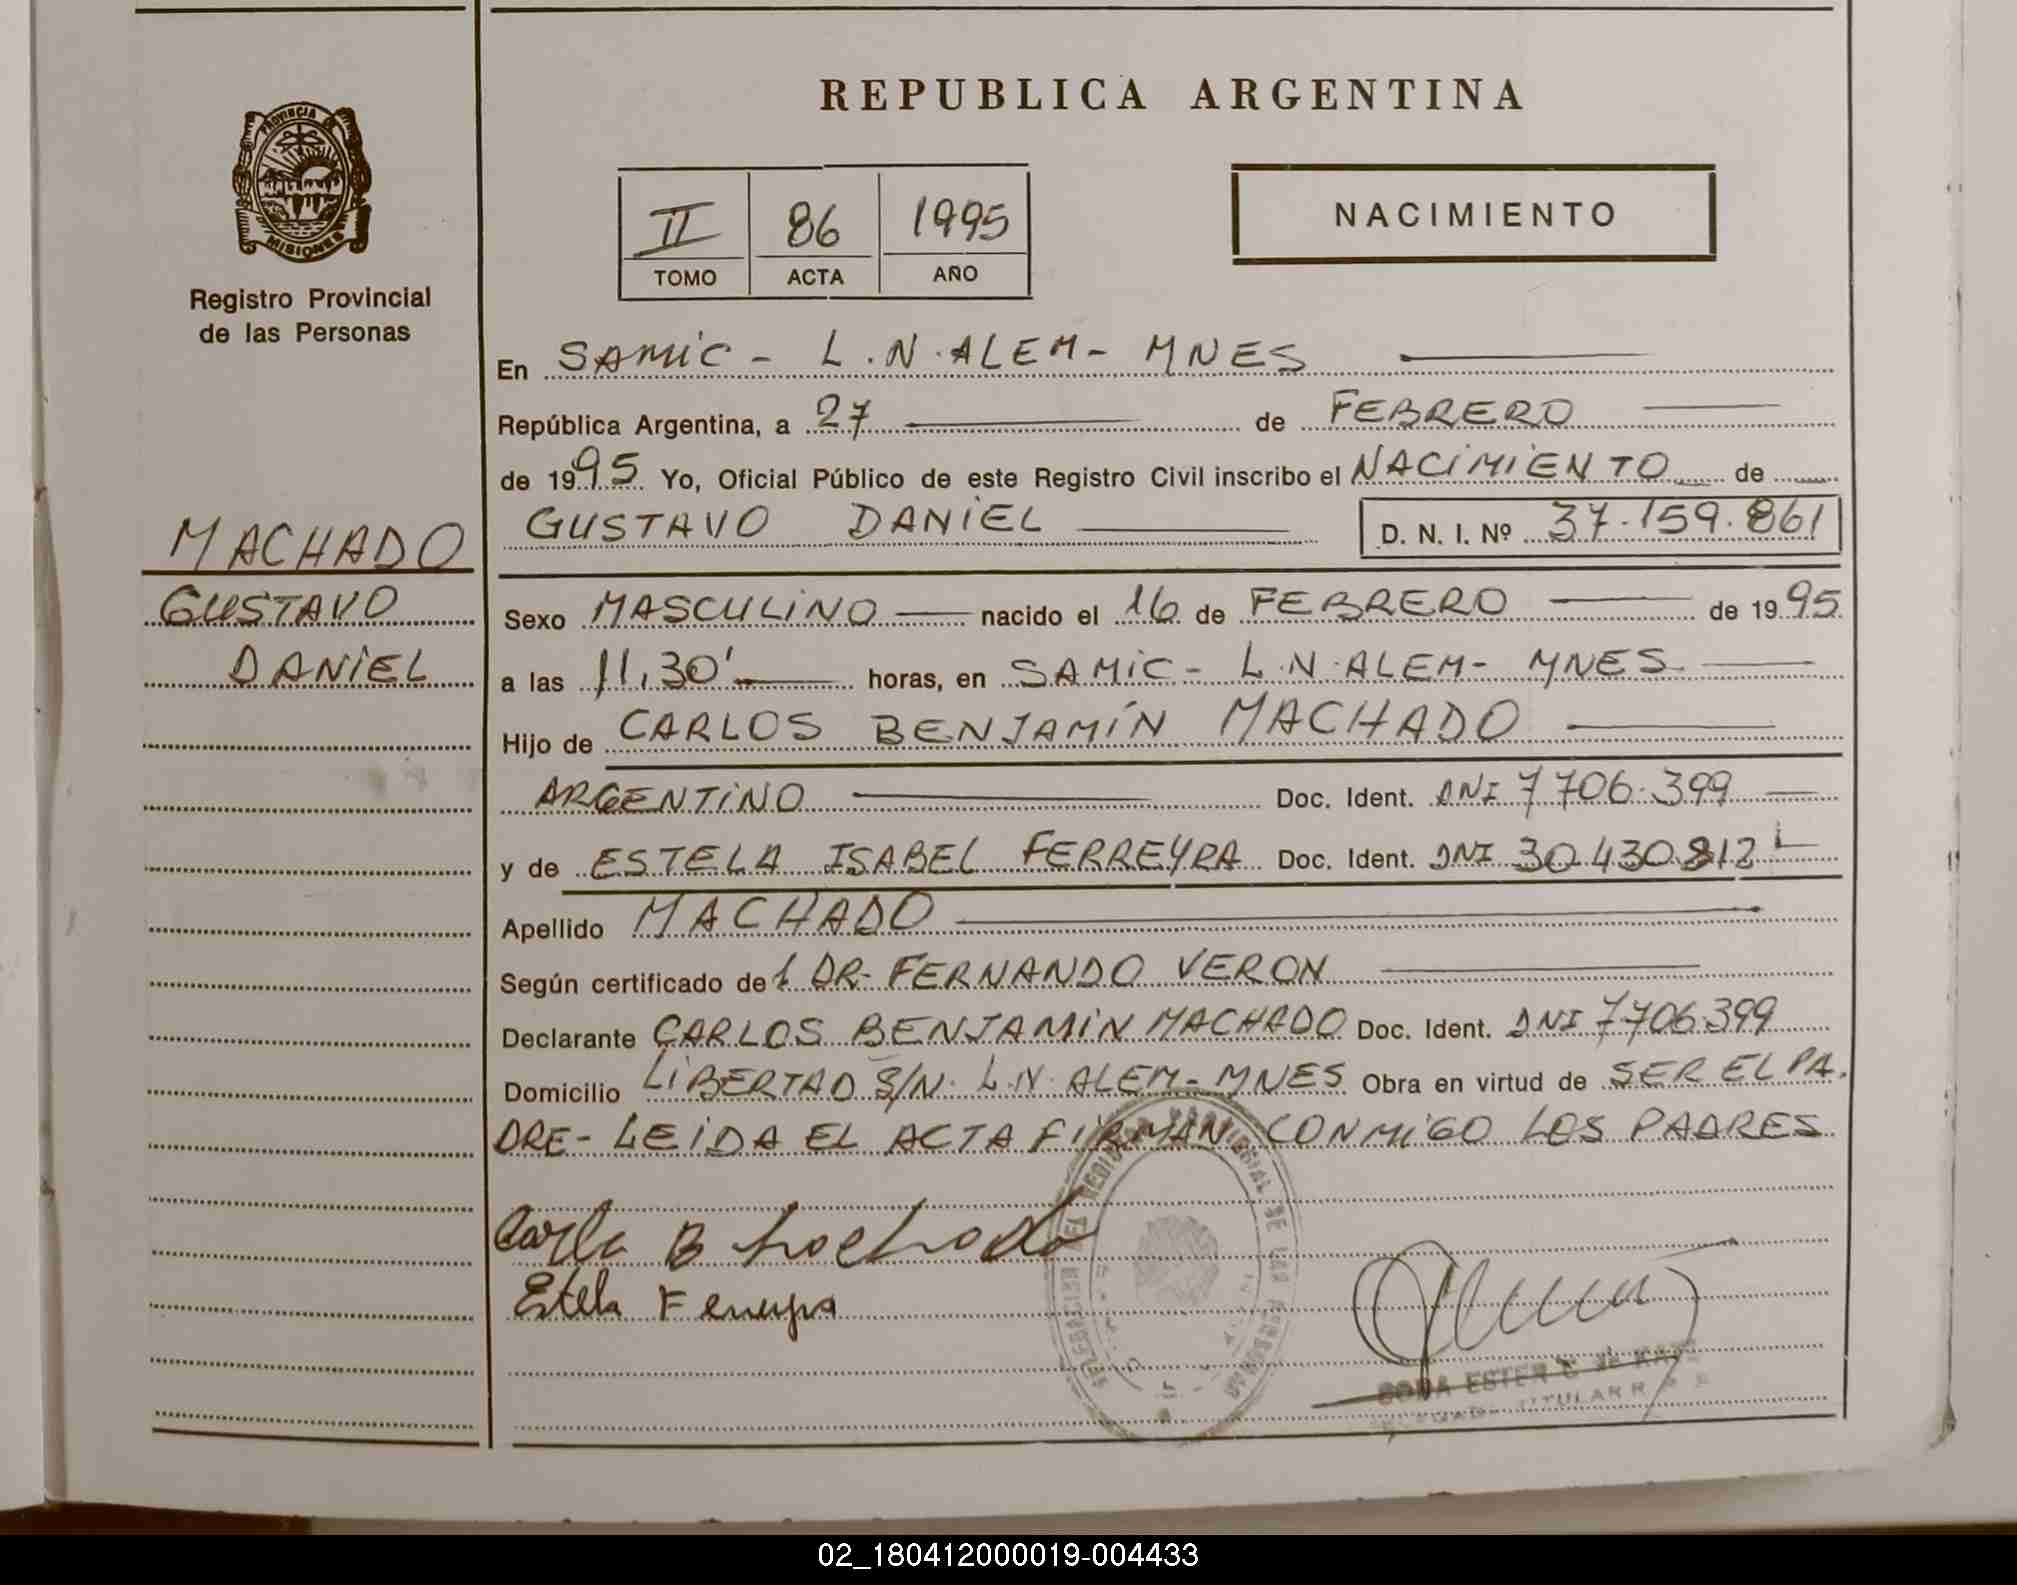 REPUBLICA ARGENTINA
PROVINCIA DE
MISIONES
Registro Provincial
de las Personas
II 86 1995
TOMO ACTA AÑO
NACIMIENTO
En SAMIC - L.N.ALEM - MNES
República Argentina, a 27 de FEBRERO
de 1995 Yo, Oficial Público de este Registro Civil inscribo el NACIMIENTO de
GUSTAVO DANIEL D. N. I. Nº 37.159.861
MACHADO
GUSTAVO
DANIEL
Sexo MASCULINO nacido el 16 de FEBRERO de 1995
a las 11,30' horas, en SAMIC - L.N.ALEM - MNES
Hijo de CARLOS BENJAMÍN MACHADO
ARGENTINO Doc. Ident. DNI 7706.399
y de ESTELA ISABEL FERREYRA Doc. Ident. DNI 30430812
Apellido MACHADO
Según certificado del DR. FERNANDO VERON
Declarante CARLOS BENJAMIN MACHADO Doc. Ident. DNI 7706399
Domicilio LIBERTAD S/N. L.N. ALEM - MNES Obra en virtud de SER EL PA.
DRE - LEIDA EL ACTA FIRMAN CONMIGO LOS PADRES
Carlo B Machado
Estela Ferreyra
ESTER
TITULAR
02_180412000019-004433